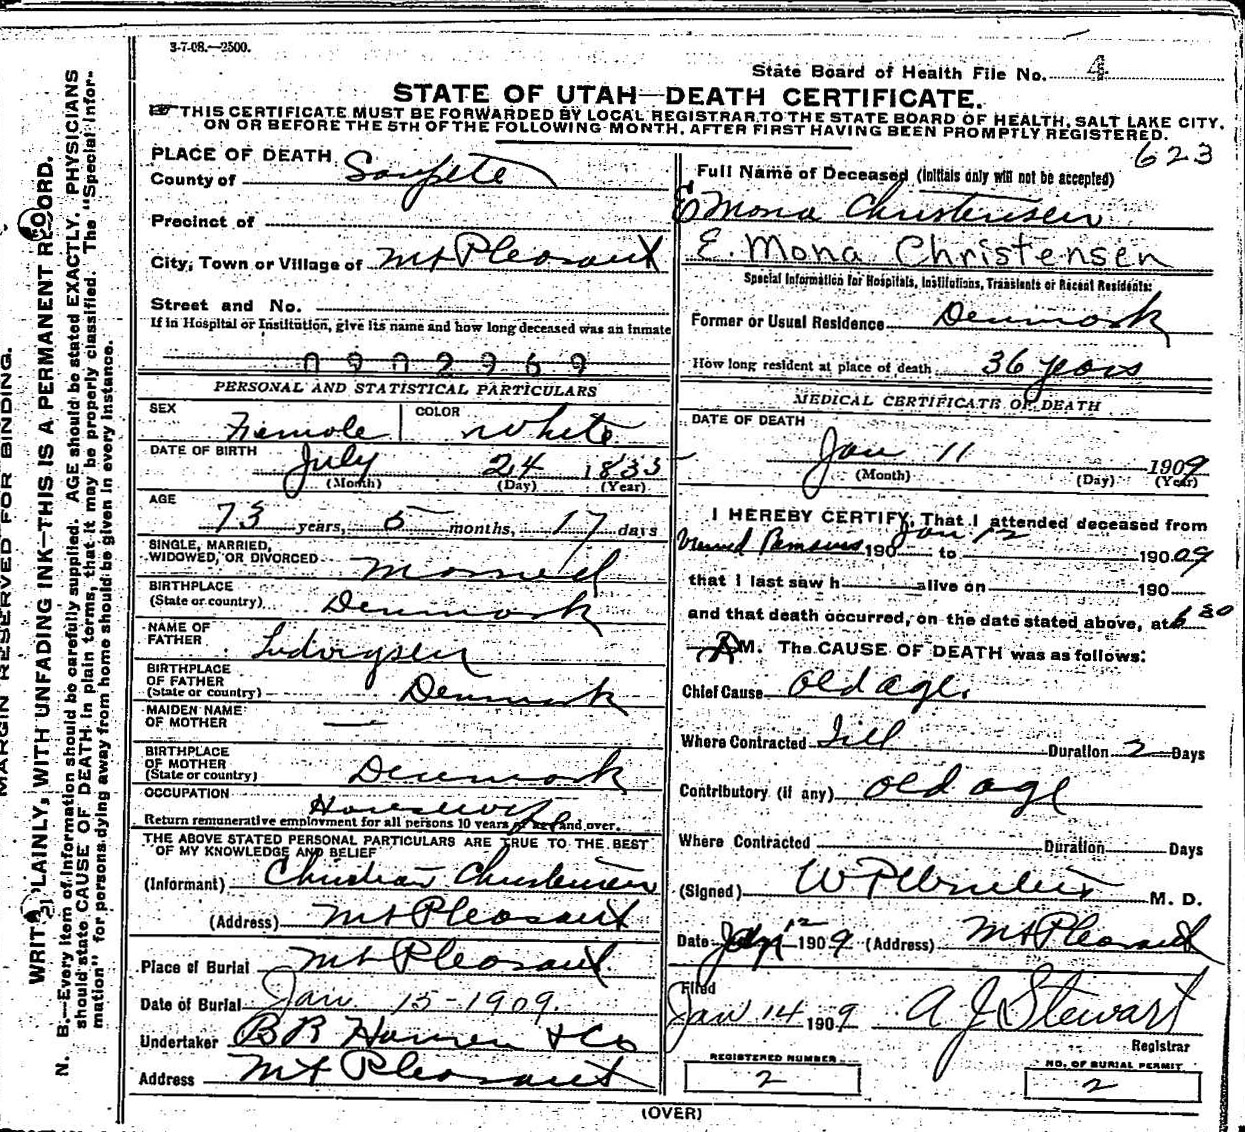 3-7-08.—2500.
State Board of Health File No. 4
STATE OF UTAH—DEATH CERTIFICATE.
THIS CERTIFICATE MUST BE FORWARDED BY LOCAL REGISTRAR TO THE STATE BOARD OF HEALTH, SALT LAKE CITY,
ON OR BEFORE THE 5TH OF THE FOLLOWING MONTH, AFTER FIRST HAVING BEEN PROMPTLY REGISTERED.
623
PLACE OF DEATH
County of Sanpete
Precinct of
City, Town or Village of Mt Pleasant
Street and No.
If in Hospital or Institution, give its name and how long deceased was an inmate
PERSONAL AND STATISTICAL PARTICULARS
SEX Female COLOR White
DATE OF BIRTH July 24 1833
(Month) (Day) (Year)
AGE 73 years, 5 months, 17 days
SINGLE, MARRIED,
WIDOWED, OR DIVORCED Married
BIRTHPLACE
(State or country) Denmark
NAME OF
FATHER Ludvigsen
BIRTHPLACE
OF FATHER
(State or country) Denmark
MAIDEN NAME
OF MOTHER —
BIRTHPLACE
OF MOTHER
(State or country) Denmark
OCCUPATION Housewife
Return remunerative employment for all persons 10 years of age and over.
THE ABOVE STATED PERSONAL PARTICULARS ARE TRUE TO THE BEST
OF MY KNOWLEDGE AND BELIEF
(Informant) Christian Christensen
(Address) Mt Pleasant
Place of Burial Mt Pleasant
Date of Burial Jan 15-1909.
Undertaker & Co
Address Mt Pleasant
Full Name of Deceased (Initials only will not be accepted)
E Mona Christensen
E. Mona Christensen
Special Information for Hospitals, Institutions, Transients or Recent Residents:
Former or Usual Residence Denmark
How long resident at place of death 36 years
MEDICAL CERTIFICATE OF DEATH
DATE OF DEATH
Jan 11 1909
(Month) (Day) (Year)
I HEREBY CERTIFY, That I attended deceased from
Viewed Remains 190 Jan 12 to 190 09
that I last saw h alive on 190
and that death occurred, on the date stated above, at 6 30
A M. The CAUSE OF DEATH was as follows:
Chief Cause Old age.
Where Contracted Duration 2 Days
Contributory (if any) old age
Where Contracted Duration Days
(Signed) M. D.
Date Jan 12 1909 (Address) Mt Pleasant
Filed
Jan 14 1909 A J Stewart
Registrar
REGISTERED NUMBER
2
NO. OF BURIAL PERMIT
2
(OVER)
MARGIN RESERVED FOR BINDING.
WRITE PLAINLY, WITH UNFADING INK—THIS IS A PERMANENT RECORD.
N. B.—Every item of information should be carefully supplied. AGE should be stated EXACTLY. PHYSICIANS
should state CAUSE OF DEATH in plain terms, that it may be properly classified. The "Special Infor-
mation" for persons dying away from home should be given in every instance.